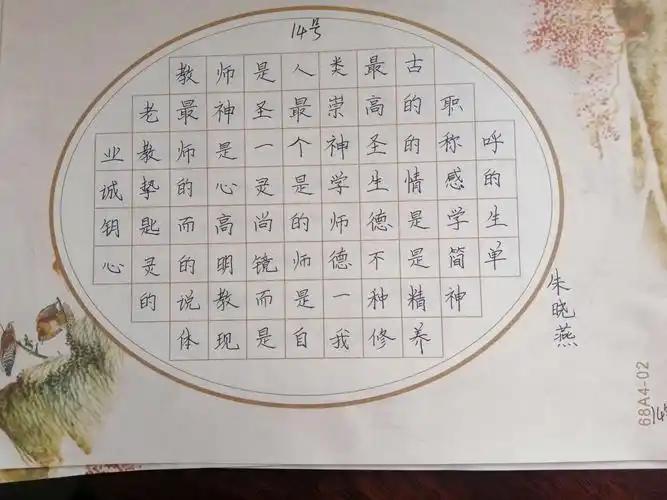 14号
教师是人类最古
老最神圣最崇高的职
业教师是一个神圣的称呼
诚挚的心灵是学生情感的
钥匙而高尚的师德是学生
心灵的明镜师德不是简单
的说教而是一种精神
体现是自我修养
朱晓燕
68A4-02